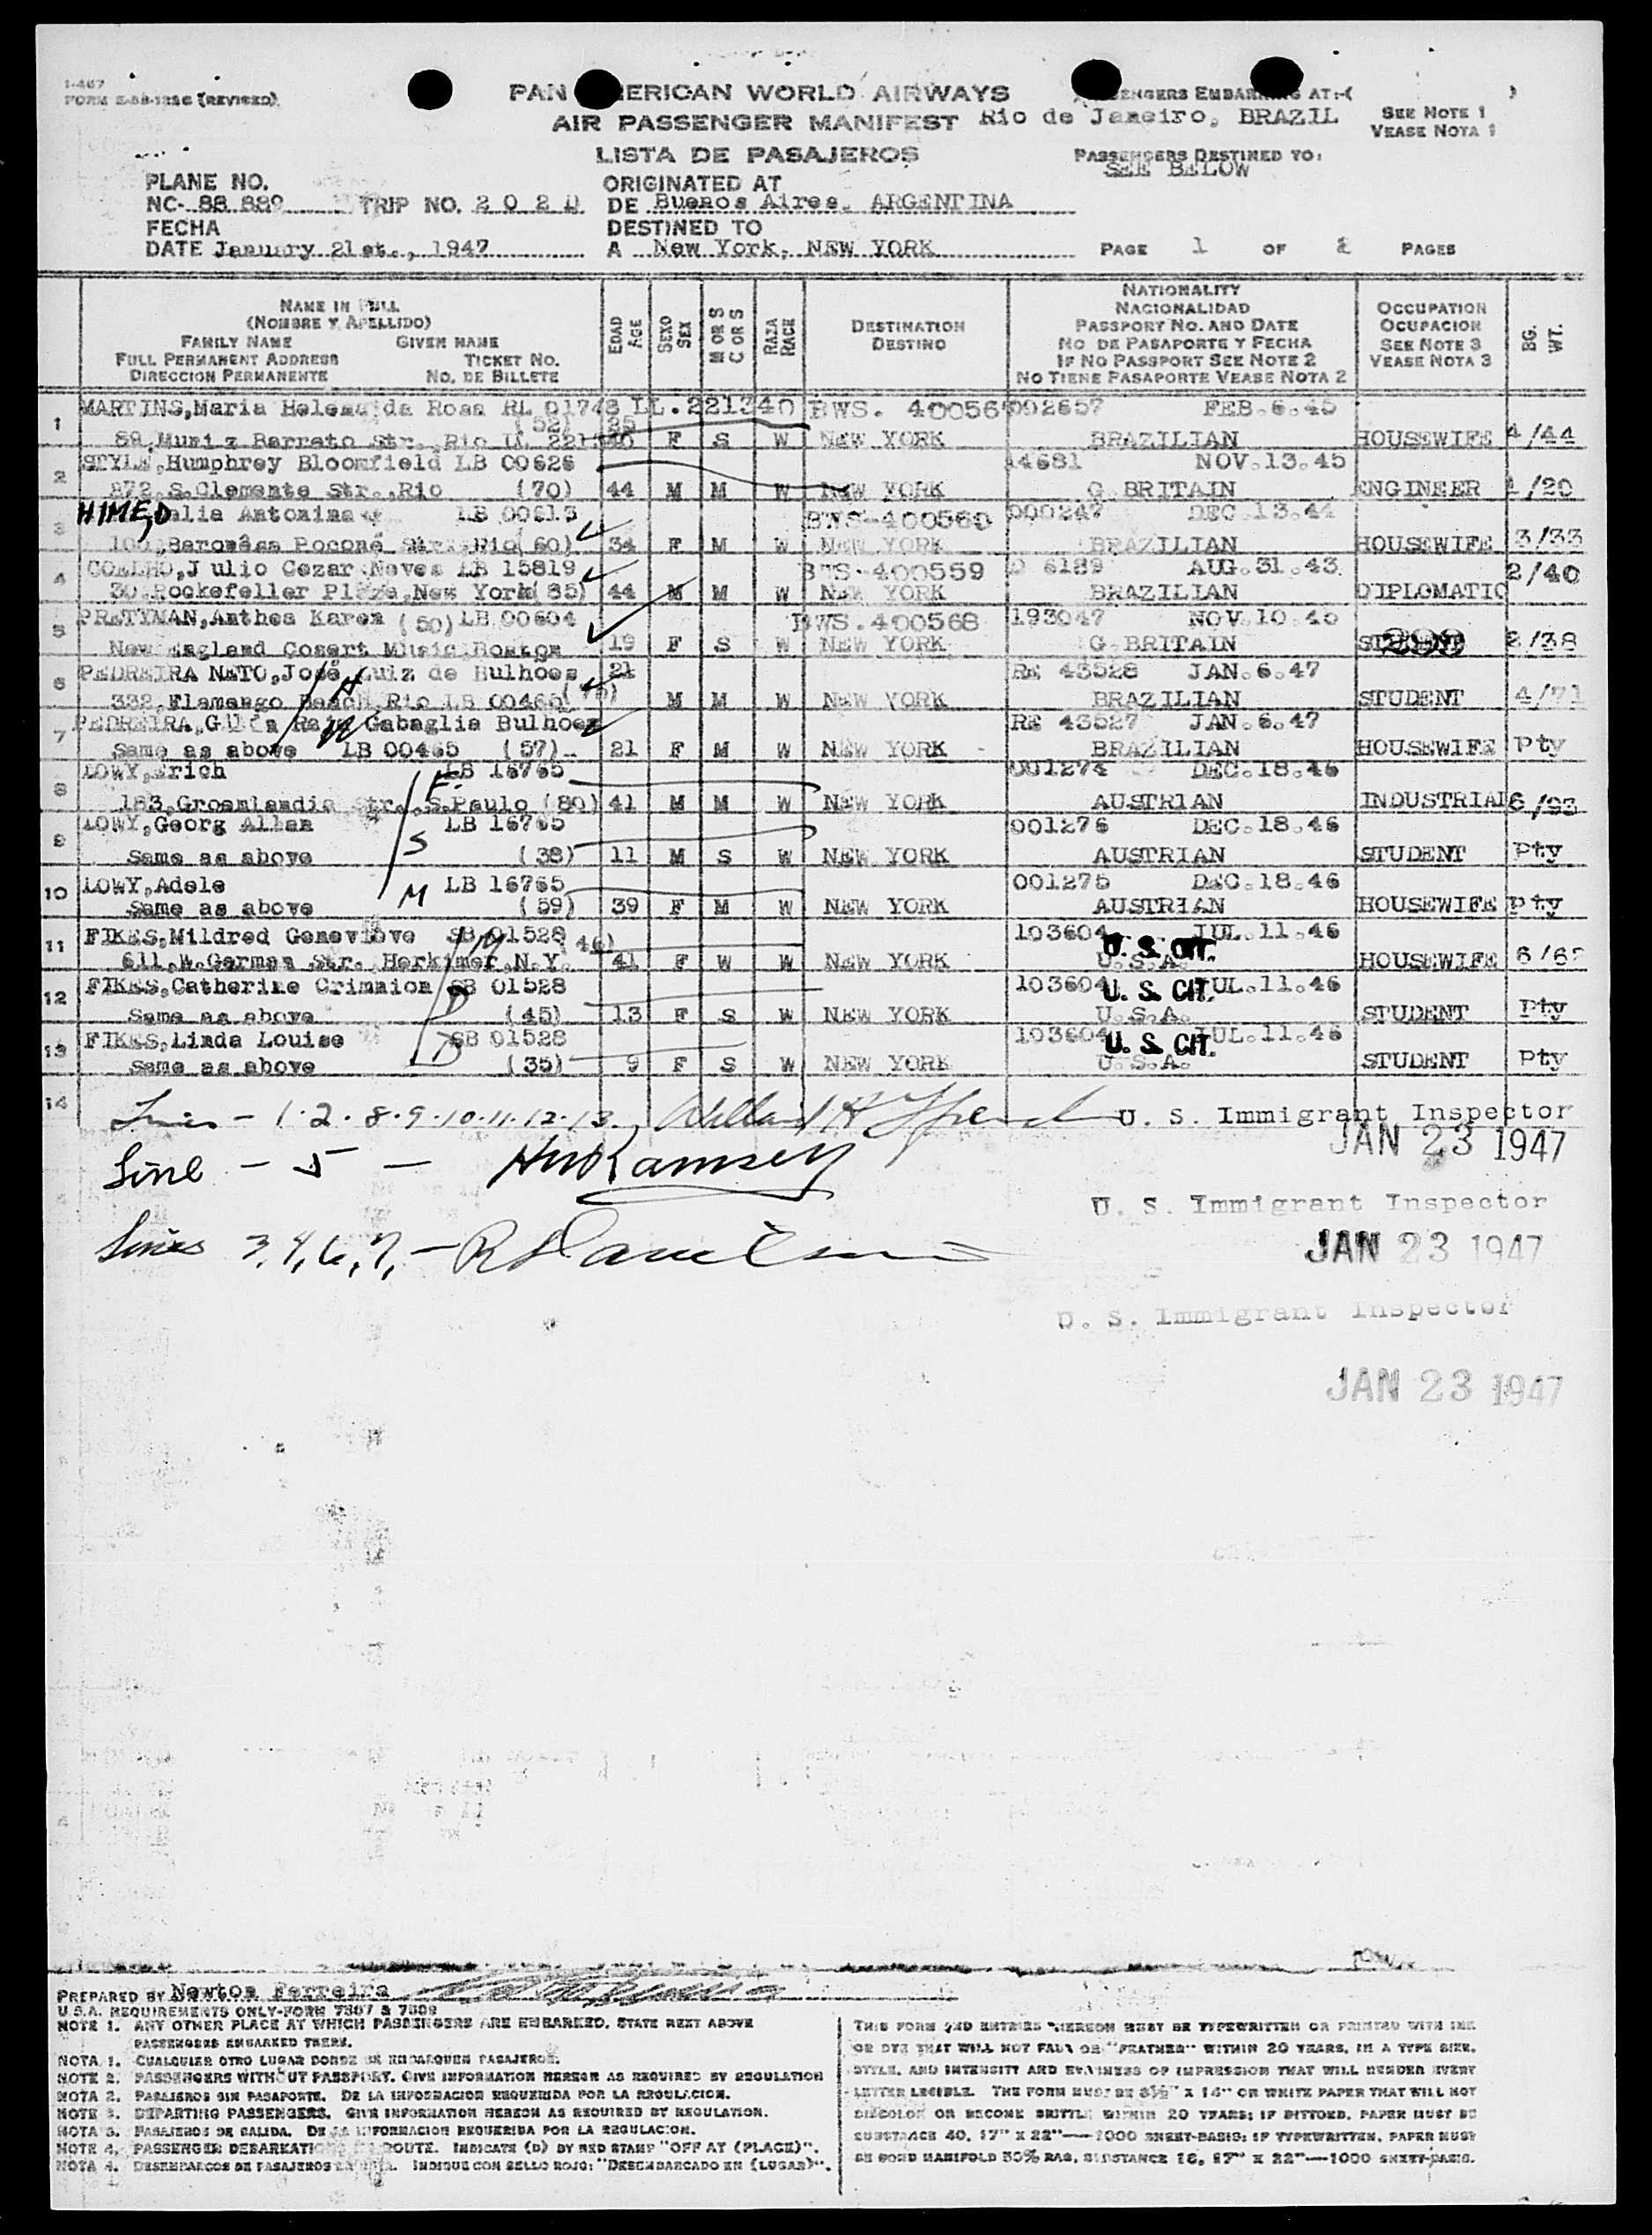 I-467
FORM (REVISED)
PAN AMERICAN WORLD AIRWAYS
AIR PASSENGER MANIFEST
LISTA DE PASAJEROS
PASSENGERS EMBARKING AT:-(
Rio de Janeiro, BRAZIL
SEE NOTE 1
VEASE NOTA 1
PASSENGERS DESTINED TO:
SEE BELOW
PLANE NO.
NC- 88 889 TRIP NO. 2 0 2 U
FECHA
DATE January 21st., 1947
ORIGINATED AT
DE Buenos Aires, ARGENTINA
DESTINED TO
A New York, NEW YORK
PAGE 1 OF 2 PAGES
NAME IN FULL
(NOMBRE Y APELLIDO)
FAMILY NAME GIVEN NAME
FULL PERMANENT ADDRESS TICKET NO.
DIRECCION PERMANENTE NO. DE BILLETE
EDAD AGE
SEXO SEX
M OR S C OR S
RAZA RACE
DESTINATION
DESTINO
NATIONALITY
NACIONALIDAD
PASSPORT NO. AND DATE
NO DE PASAPORTE Y FECHA
IF NO PASSPORT SEE NOTE 2
NO TIENE PASAPORTE VEASE NOTA 2
OCCUPATION
OCUPACION
SEE NOTE 3
VEASE NOTA 3
BG. WT.
1 MARTINS,Maria Helena da Rosa RL 01748 LL.221340 BWS. 40056 092657 FEB.6.45
59,Muniz Barreto Str.,Rio (52) 25 F S W NEW YORK BRAZILIAN HOUSEWIFE 4/44
2 STYLE,Humphrey Bloomfield LB 00626 14681 NOV.13.45
272,S.Clemente Str.,Rio (70) 44 M M W NEW YORK G BRITAIN ENGINEER 1/20
3 HIME, Antonina LB 00615 BWS-400560 000247 DEC.13.44
100,Baronêsa Poconé Str.,Rio(60) 34 F M W NEW YORK BRAZILIAN HOUSEWIFE 3/33
4 COELHO,J ulio Cezar Neves LB 15819 BWS-400559 D 6189 AUG.31.43
30,Rockefeller Plaza,New York(85) 44 M M W NEW YORK BRAZILIAN DIPLOMATIC 2/40
5 PRETYMAN,Anthea Karen (50) LB 00604 BWS.400568 193047 NOV 10.45
New England Cosert Music,Boston 19 F S W NEW YORK G BRITAIN 2/38
6 PEDREIRA NETO,José Luiz de Bulhoes 21 RE 43528 JAN.6.47
H
332,Flamengo Beach,Rio LB 00465 (75) M M W NEW YORK BRAZILIAN STUDENT 4/71
7 PEDREIRA,Gilda Raja Gabaglia Bulhoes RE 43527 JAN.6.47
W
Same as above LB 00465 (57) 21 F M W NEW YORK BRAZILIAN HOUSEWIFE Pty
8 LOWY,Erich LB 16765 001274 DEC.18.46
F.
183,Groenlandia Str.,S.Paulo (80) 41 M M W NEW YORK AUSTRIAN INDUSTRIAL 6/93
9 LOWY,Georg Allan LB 16765 001276 DEC.18.46
S
Same as above (38) 11 M S W NEW YORK AUSTRIAN STUDENT Pty
10 LOWY,Adele LB 16765 001275 DEC.18.46
M
Same as above (59) 39 F M W NEW YORK AUSTRIAN HOUSEWIFE Pty
11 FIKES,Mildred Genevieve SB 01528 (46) 103604 JUL.11.46
M
U. S. CIT.
611,W.German Str. Herkimer,N.Y. 41 F W W NEW YORK U.S.A. HOUSEWIFE 6/62
12 FIKES,Catherine Crimmion SB 01528 103604 JUL.11.46
D
U. S. CIT.
Same as above (45) 13 F S W NEW YORK U.S.A. STUDENT Pty
13 FIKES,Linda Louise SB 01528 103604 JUL.11.46
D
U. S. CIT.
Same as above (35) 9 F S W NEW YORK U.S.A. STUDENT Pty
14
Lines - 1.2.8.9.10.11.12.13. U. S. Immigrant Inspector
JAN 23 1947
Line - 5 - HW Ramsey
U. S. Immigrant Inspector
Lines 3,4,6,7, -
JAN 23 1947
U. S. Immigrant Inspector
JAN 23 1947
PREPARED BY Newton Ferreira
U.S.A. REQUIREMENTS ONLY-FORM 7507 & 7509
NOTE 1. ANY OTHER PLACE AT WHICH PASSENGERS ARE EMBARKED, STATE NEXT ABOVE
PASSENGERS EMBARKED THERE.
NOTA 1. CUALQUIER OTRO LUGAR DONDE SE EMBARQUEN PASAJEROS.
NOTE 2. PASSENGERS WITHOUT PASSPORT. GIVE INFORMATION HEREON AS REQUIRED BY REGULATION
NOTA 2. PASAJEROS SIN PASAPORTE. DE LA INFORMACION REQUERIDA POR LA REGULACION.
NOTE 3. DEPARTING PASSENGERS. GIVE INFORMATION HEREON AS REQUIRED BY REGULATION.
NOTA 3. PASAJEROS DE SALIDA. DE LA INFORMACION REQUERIDA POR LA REGULACION.
NOTE 4. PASSENGER DEBARKATION ROUTE. INDICATE (D) BY RED STAMP "OFF AT (PLACE)".
NOTA 4. DESEMBARCOS DE PASAJEROS INDIQUE CON SELLO ROJO: "DESEMBARCADO EN (LUGAR)".
THIS FORM AND ENTRIES THEREON MUST BE TYPEWRITTEN OR PRINTED WITH INK
OR DYE THAT WILL NOT FADE OR "FEATHER" WITHIN 20 YEARS, IN A TYPE SIZE,
STYLE, AND INTENSITY AND EVENNESS OF IMPRESSION THAT WILL RENDER EVERY
LETTER LEGIBLE. THE FORM MUST BE 8½" X 14" OR WHITE PAPER THAT WILL NOT
DISCOLOR OR BECOME BRITTLE WITHIN 20 YEARS; IF DITTOED, PAPER MUST BE
SUBSTANCE 40, 17" X 22"—1000 SHEET-BASIS; IF TYPEWRITTEN, PAPER MUST
BE BOND MANIFOLD 50% RAG, SUBSTANCE 16, 17" X 22"—1000 SHEET-BASIS.